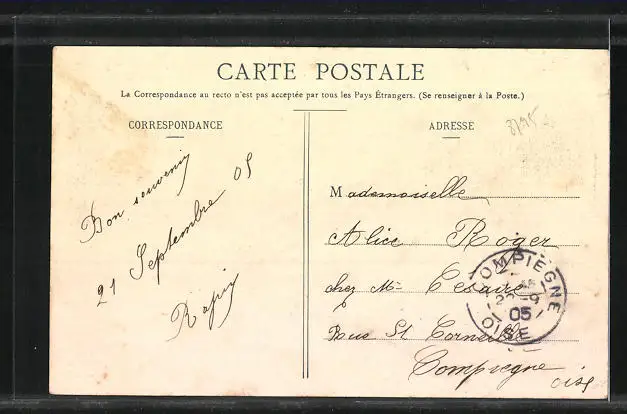 CARTE POSTALE
La Correspondance au recto n'est pas acceptée par tous les Pays Étrangers. (Se renseigner à la Poste.)
CORRESPONDANCE
Bon souvenir
21 Septembre 05
ADRESSE
Mademoiselle
Alice Roger
chez Mr Cesaire
Rue St Corneille
Compiegne
oise
COMPIEGNE
22-9
05
OISE